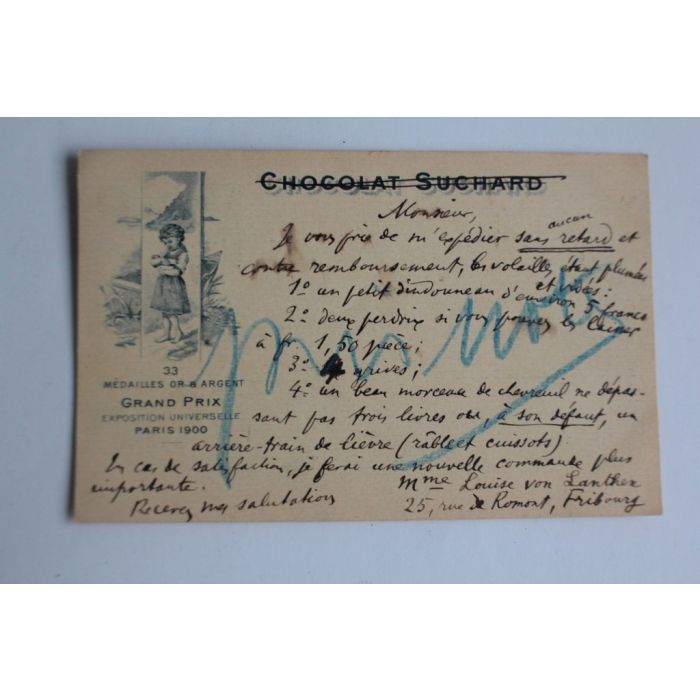 CHOCOLAT SUCHARD
Monsieur,
aucun
Je vous prie de m'expédier sans retard et
contre remboursement, les volailles étant plumées
et vidées :
1º un petit dindonneau d'environ 5 francs
2º deux perdrix si vous pouvez les laisser
à fr. 1,50 pièce ;
3º grives ;
4º un beau morceau de chevreuil ne dépas-
sant pas trois livres ou, à son défaut, un
arrière-train de lièvre (râble et cuissots).
En cas de satisfaction, je ferai une nouvelle commande plus
importante.
Mme Louise von Lanthen
Recevez mes salutations
25, rue de Romont, Fribourg
33
MÉDAILLES OR & ARGENT
GRAND PRIX
EXPOSITION UNIVERSELLE
PARIS 1900